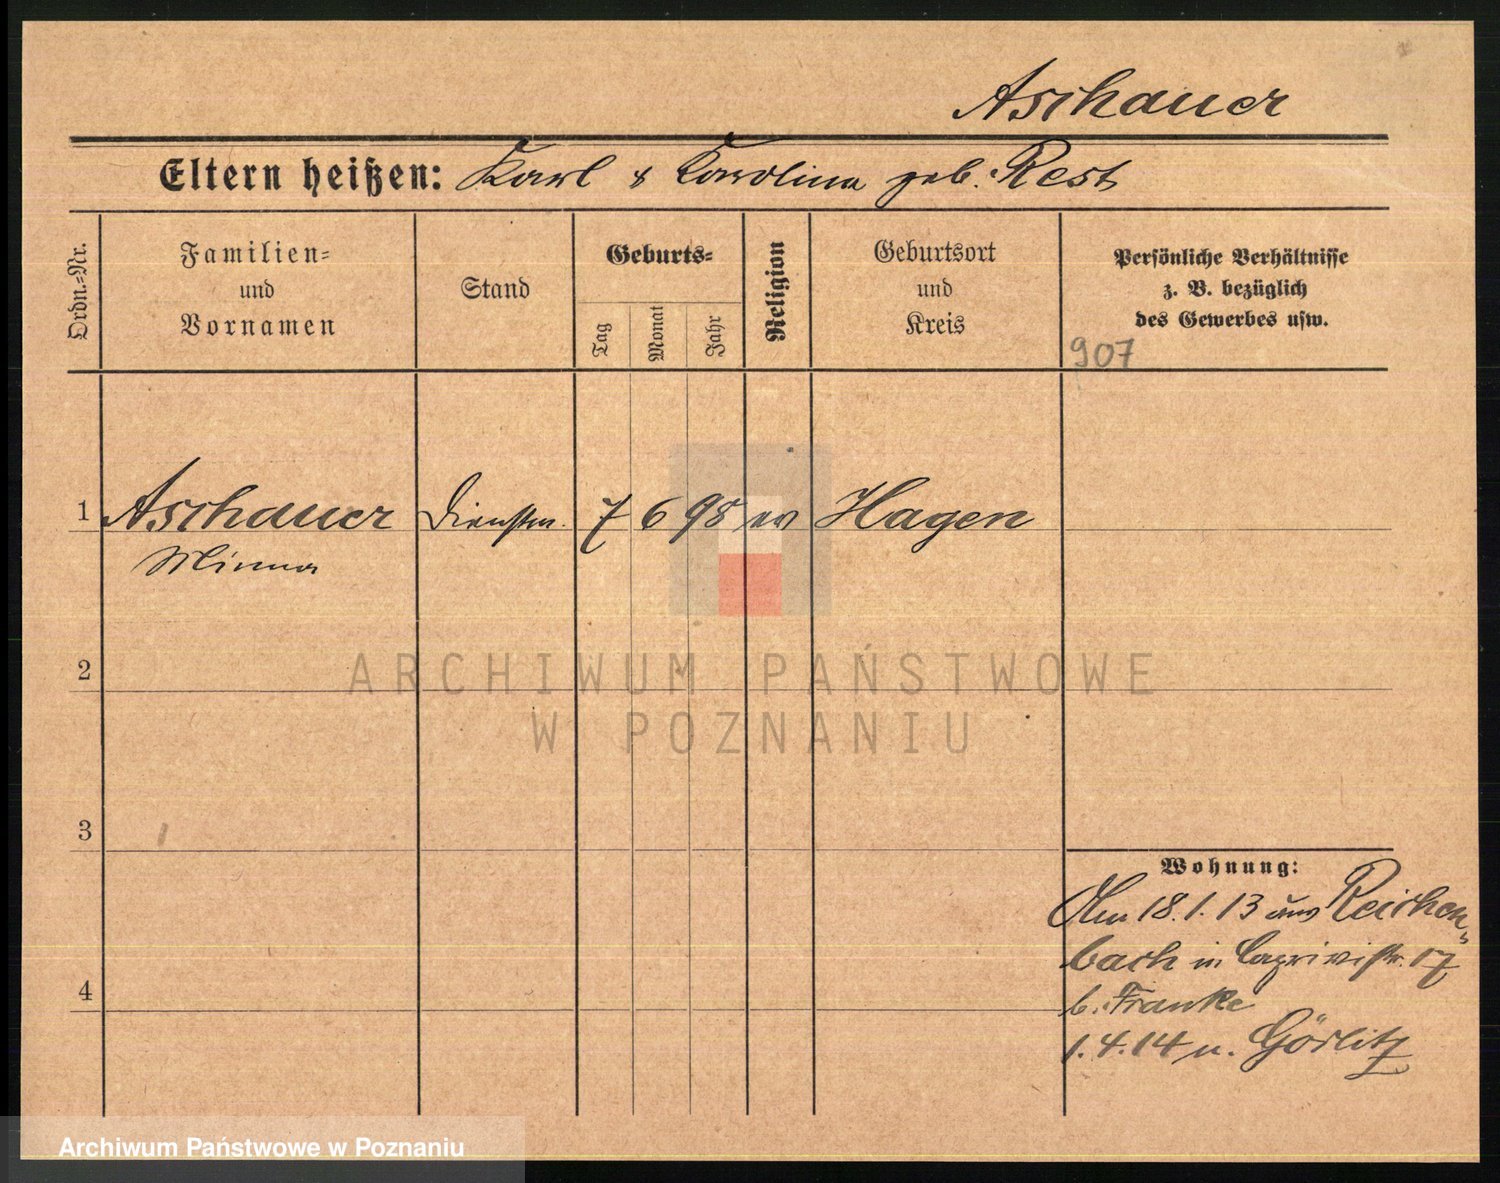 Aschauer
Eltern heißen: Karl & Karolina geb. Rest
Ordn.=Nr.
Familien=
und
Vornamen
Stand
Geburts=
Tag
Monat
Jahr
Religion
Geburtsort
und
Kreis
Persönliche Verhältnisse
z. B. bezüglich
des Gewerbes usw.
907
1 Aschauer Dienstm. 7 6 98 ev Hagen
Minna
2
ARCHIWUM PAŃSTWOWE
W POZNANIU
3
Wohnung:
Am 18.1.13 aus Reichen=
bach in Caprivistr. 17
b. Franke
4
1.4.14 n. Görlitz
Archiwum Państwowe w Poznaniu